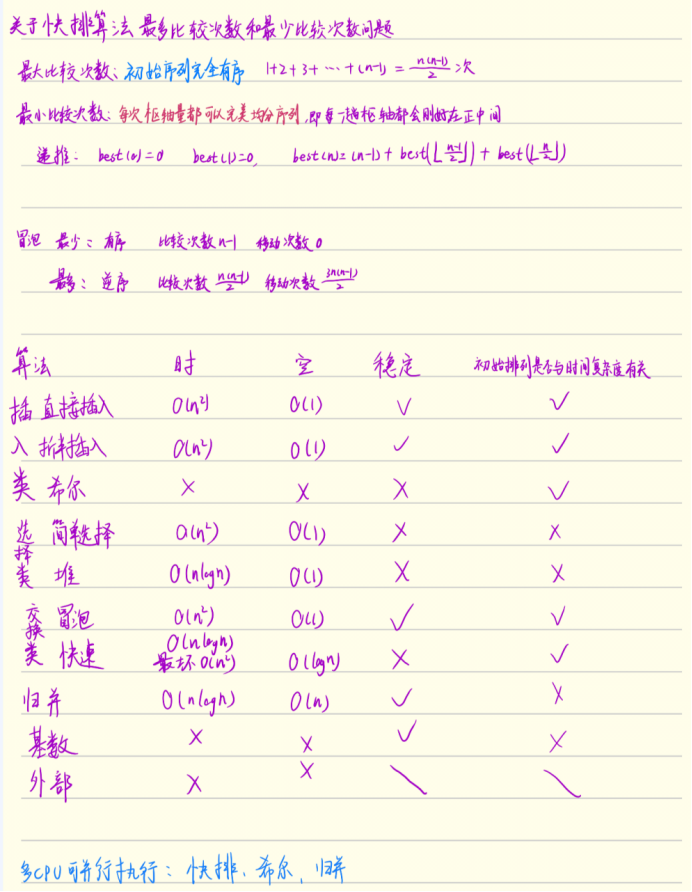 关于快排算法最多比较次数和最少比较次数问题
最大比较次数：初始序列完全有序 1+2+3+…+(n-1) = n(n-1)/2 次
最小比较次数：每次枢轴量都可以完美均分序列，即每一趟枢轴都会刚好在正中间
递推： best(0)=0 best(1)=0, best(n)=(n-1)+best(⌊(n-1)/2⌋)+best(⌊n/2⌋)
冒泡 最少：有序 比较次数n-1 移动次数0
最多：逆序 比较次数 n(n-1)/2 移动次数 3n(n-1)/2
算法 时 空 稳定 初始排列是否与时间复杂度有关
插 直接插入 O(n²) O(1) ✓ ✓
入 折半插入 O(n²) O(1) ✓ ✓
类 希尔 × × × ✓
选择 简单选择 O(n²) O(1) × ×
类 堆 O(nlogn) O(1) × ×
交换 冒泡 O(n²) O(1) ✓ ✓
类 快速 O(nlogn) 最坏O(n²) O(logn) × ✓
归并 O(nlogn) O(n) ✓ ×
基数 × × ✓ ×
外部 × × \ \
多CPU可并行执行：快排、希尔、归并